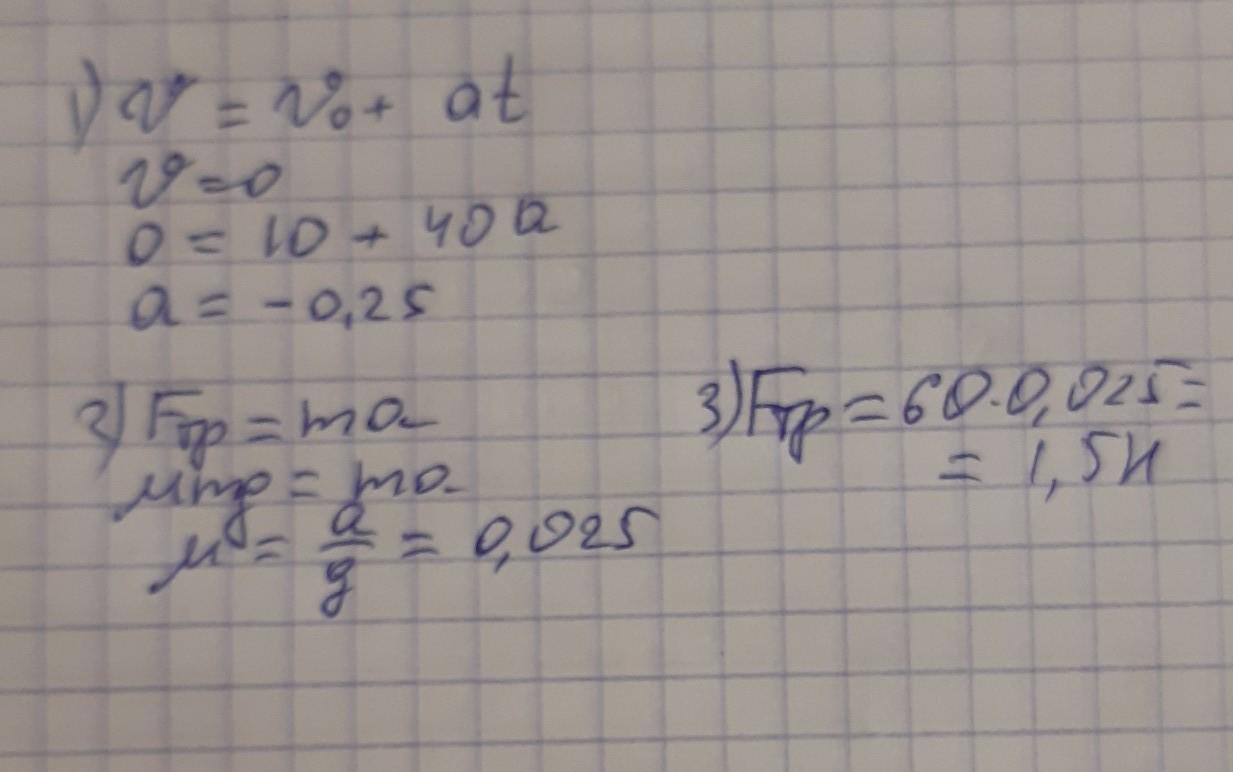 1) v = v₀ + at
v = 0
0 = 10 + 40a
a = -0,25
2) Fтр = ma
μmg = ma
μ = a/g = 0,025
3) Fтр = 60·0,025 =
= 1,5 Н